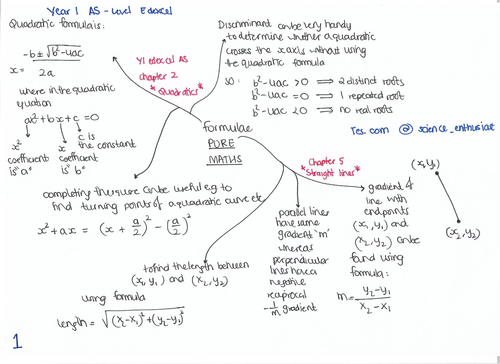 Year 1 AS-Level Edexcel
Quadratic formula is:
-b ± √b²-4ac
x =
2a
where in the quadratic
equation
ax²+bx+c=0
x² coefficient is "a"
x coefficient is "b"
c is the constant
Y1 edexcel AS
chapter 2
*Quadratics*
Discriminant can be very handy
to determine whether a quadratic
crosses the x axis without using
the quadratic formula
so: b²-4ac >0 ⇒ 2 distinct roots
b²-4ac =0 ⇒ 1 repeated root
b²-4ac <0 ⇒ no real roots
Tes.com @science_enthusiast
formulae
PURE
MATHS
completing the square can be useful eg to
find turning points of a quadratic curve etc
x²+ax = (x + a/2)² - (a/2)²
to find the length between
(x₁,y₁) and (x₂,y₂)
using
formula
length = √(x₂-x₁)²+(y₂-y₁)²
*Chapter 5
Straight lines*
parallel lines
have same
gradient 'm'
whereas
perpendicular
lines have a
negative
reciprocal
-1/m gradient
gradient of
line with
endpoints
(x₁,y₁) and
(x₂,y₂) can be
found using
formula:
m = y₂-y₁
x₂-x₁
(x₁,y₁)
(x₂,y₂)
1